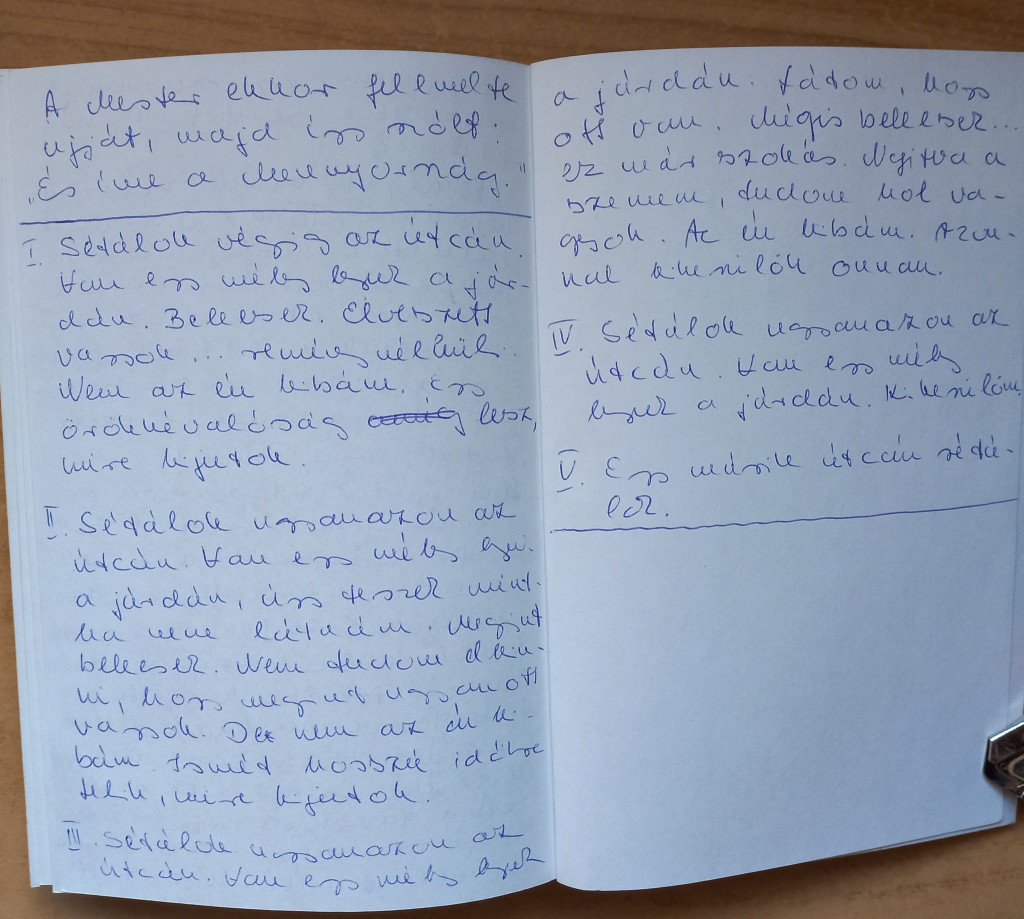 A Mester ekkor felemelte
ujját, majd így szólt:
„És íme a Mennyország."
I. Sétálok végig az útcán.
Van egy mély lyuk a jár-
dán. Beleesek. Elveszett
vagyok... remény nélküli.
Nem az én hibám. Egy
örökkévalóság lesz,
mire kijutok.
II. Sétálok ugyanazon az
útcán. Van egy mély lyuk
a járdán, úgy teszek mint-
ha nem látnám. Megint
beleesek. Nem tudom elhin-
ni, hogy megint ugyanott
vagyok. De nem az én hi-
bám. Ismét hosszú időbe
telik, mire kijutok.
III. Sétálok ugyanazon az
útcán. Van egy mély lyuk
a járdán. Látom, hogy
ott van. Mégis beleesek...
ez már szokás. Nyitva a
szemem, tudom hol va-
gyok. Az én hibám. Azon-
nal kikerülök onnan.
IV. Sétálok ugyanazon az
útcán. Van egy mély
lyuk a járdán. Kikerülöm.
V. Egy másik útcán sétá-
lok.